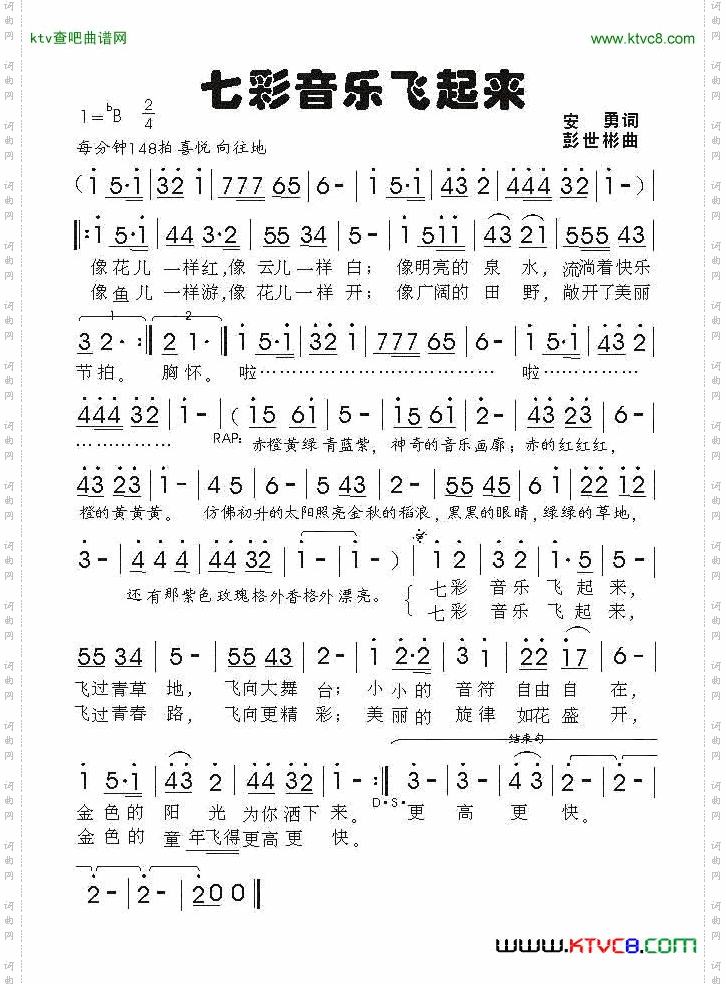 ktv查吧曲谱网 www.ktvc8.com
七彩音乐飞起来
1=bB 2/4
安 勇词
彭世彬曲
每分钟148拍 喜悦 向往地
(1 5·1|32 1|777 65|6-|1 5·1|43 2|444 32|1-)|
‖:1 5·1|44 3·2|55 34|5-|1 511|43 21|555 45|
像花儿 一样红,像 云儿一样 白; 像明亮的 泉 水, 流淌着快乐
像鱼儿 一样游,像 花儿一样 开; 像广阔的 田 野, 敞开了美丽
1 2
3 2·:‖2 1·‖1 5·1|32 1|777 65|6-|1 5·1|43 2|
节拍。 胸怀。 啦………………………… 啦…………
444 32|1-|(15 61|5-|15 61|2-|43 23|6-|
…………… RAP: 赤橙黄绿 青蓝紫, 神奇的音乐画廊; 赤的红红红,
43 23|1-|4 5|6-|4 5|2-|55 45|6 1|22 12|
橙的黄黄黄。 仿佛初升的太阳照亮金秋的稻浪, 黑黑的眼睛, 绿绿的草地,
3-|4 4|44 32|1-|1-)|1 2|32 12|1·5|5-|
还有那紫色玫瑰格外香格外漂亮。 七彩 音乐 飞 起 来,
七彩 音乐 飞 起 来,
55 34|5-|55 43|2-|1 2·2|3 1|22 17|6-|
飞过青草 地, 飞向大舞 台; 小小的 音符 自由自 在,
飞过青春 路, 飞向更精 彩; 美丽的 旋律 如花盛 开,
结束句
1 5·1|43 2|44 32|1-:‖3-|3-|43 2|2-|2-|
D·S·
金色的 阳 光 为你洒下 来。 更 高 更 快。
金色的 童 年飞得更高更 快。
2-|2-|200‖
www.KTVC8.com